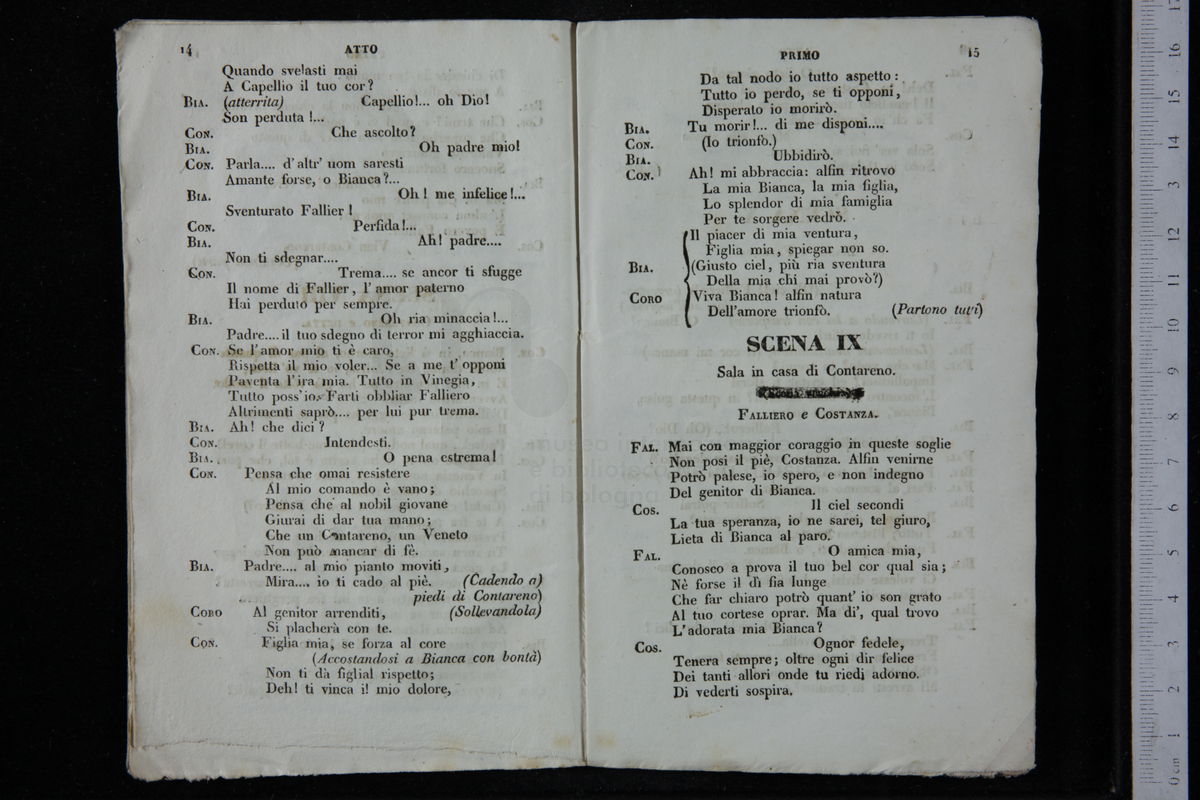 14 ATTO
Quando svelasti mai
A Capellio il tuo cor?
BIA. (atterrita) Capellio!... oh Dio!
Son perduta!...
CON. Che ascolto?
BIA. Oh padre mio!
CON. Parla.... d'altr' uom saresti
Amante forse, o Bianca?...
BIA. Oh! me infelice!...
Sventurato Fallier!
CON. Perfida!...
BIA. Ah! padre....
Non ti sdegnar....
CON. Trema.... se ancor ti sfugge
Il nome di Fallier, l'amor paterno
Hai perduto per sempre.
BIA. Oh ria minaccia!...
Padre.... il tuo sdegno di terror mi agghiaccia.
CON. Se l'amor mio ti è caro,
Rispetta il mio voler... Se a me t'opponi
Paventa l'ira mia. Tutto in Vinegia,
Tutto poss'io. Farti obbliar Falliero
Altrimenti saprò.... per lui pur trema.
BIA. Ah! che dici?
CON. Intendesti.
BIA. O pena estrema!
CON. Pensa che omai resistere
Al mio comando è vano;
Pensa che al nobil giovane
Giurai di dar tua mano;
Che un Contareno, un Veneto
Non può mancar di fè.
BIA. Padre.... al mio pianto moviti,
Mira.... io ti cado al piè. (Cadendo a)
piedi di Contareno)
CORO Al genitor arrenditi, (Sollevandola)
Si placherà con te.
CON. Figlia mia, se forza al core
(Accostandosi a Bianca con bontà)
Non ti dà figlial rispetto;
Deh! ti vinca il mio dolore,
PRIMO 15
Da tal nodo io tutto aspetto:
Tutto io perdo, se ti opponi,
Disperato io morirò.
BIA. Tu morir!... di me disponi....
CON. (Io trionfo.)
BIA. Ubbidirò.
CON. Ah! mi abbraccia: alfin ritrovo
La mia Bianca, la mia figlia,
Lo splendor di mia famiglia
Per te sorgere vedrò.
Il piacer di mia ventura,
Figlia mia, spiegar non so.
BIA. (Giusto ciel, più ria sventura
Della mia chi mai provò?)
CORO Viva Bianca! alfin natura
Dell'amore trionfò. (Partono tutti)
SCENA IX
Sala in casa di Contareno.
FALLIERO e COSTANZA.
FAL. Mai con maggior coraggio in queste soglie
Non posi il piè, Costanza. Alfin venirne
Potrò palese, io spero, e non indegno
Del genitor di Bianca.
COS. Il ciel secondi
La tua speranza, io ne sarei, tel giuro,
Lieta di Bianca al paro.
FAL. O amica mia,
Conosco a prova il tuo bel cor qual sia;
Nè forse il dì fia lunge
Che far chiaro potrò quant' io son grato
Al tuo cortese oprar. Ma di', qual trovo
L'adorata mia Bianca?
COS. Ognor fedele,
Tenera sempre; oltre ogni dir felice
Dei tanti allori onde tu riedi adorno.
Di vederti sospira.